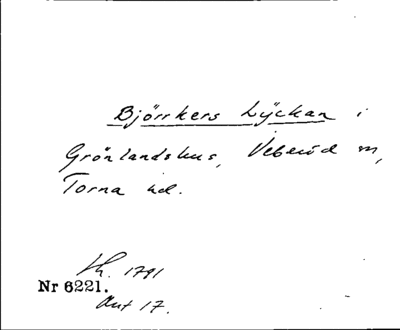 Björrkers Lÿckan i
Grönlandshus, Veberöd sn,
Torna hd.
Lh. 1791
Nr 6221.
Akt 17.